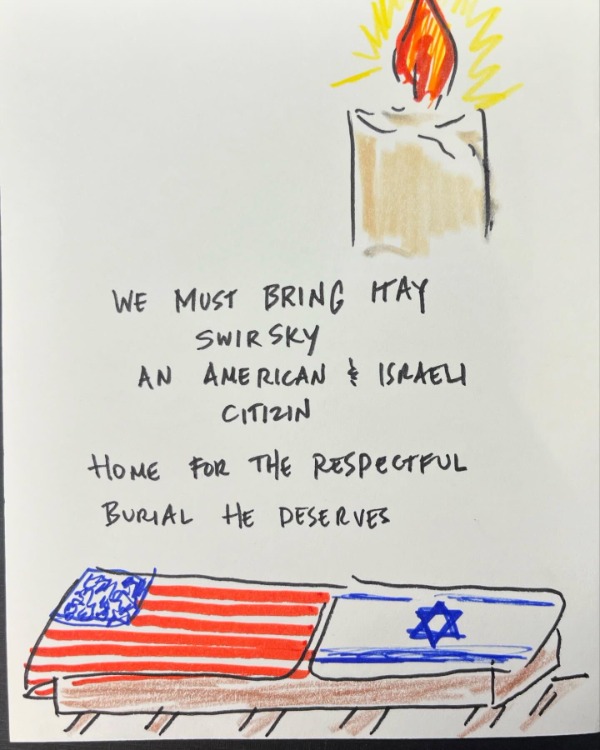 WE MUST BRING ITAY
SWIRSKY
AN AMERICAN & ISRAELI
CITIZIN
HOME FOR THE RESPECTFUL
BURIAL HE DESERVES